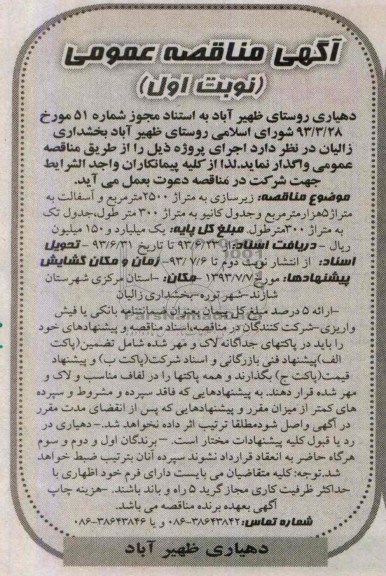 آگهی مناقصه عمومی
(نوبت اول)
دهیاری روستای ظهیر آباد به استناد مجوز شماره ۵۱ مورخ
۹۳/۳/۲۸ شورای اسلامی روستای ظهیر آباد بخشداری
زالیان در نظر دارد اجرای پروژه ذیل را از طریق مناقصه
عمومی واگذار نماید.لذا از کلیه پیمانکاران واجد الشرایط
جهت شرکت در مناقصه دعوت بعمل می آید.
موضوع مناقصه: زیرسازی به متراژ ۲۵۰۰مترمربع و آسفالت به
متراژ ۵هزارمترمربع وجدول کانیو به متراژ ۳۰۰ متر طول،جدول تک
به متراژ ۳۰۰مترطول. مبلغ کل پایه: یک میلیارد و۱۵۰ میلیون
ریال - دریافت اسناد: ۹۳/۶/۲۳ تا تاریخ ۹۳/۶/۳۱ - تحویل
اسناد: از انتشار نوبت دوم تا ۹۳/۷/۶- زمان و مکان گشایش
پیشنهادها: مورخ۱۳۹۳/۷/۷ -مکان: -استان مرکزی شهرستان
شازند-شهر توره-بخشداری زالیان
-ارائه ۵ درصد مبلغ کل پیمان بعنوان ضمانتنامه بانکی یا فیش
واریزی-شرکت کنندگان در مناقصه،اسناد مناقصه و پیشنهادهای خود
را باید در پاکتهای جداگانه لاک و مهر شده شامل تضمین(پاکت
الف)پیشنهاد فنی بازرگانی و اسناد شرکت(پاکت ب) و پیشنهاد
قیمت(پاکت ج) بگذارند و همه پاکتها را در لفاف مناسب و لاک و
مهر شده قرار دهند. به پیشنهادهایی که فاقد سپرده و مشروط و سپرده
های کمتر از میزان مقرر و پیشنهادهایی که پس از انقضای مدت مقرر
در آگهی واصل شودمطلقا ترتیب اثر داده نخواهد شد.- دهیاری در
رد یا قبول کلیه پیشنهادات مختار است. - برندگان اول و دوم و سوم
هرگاه حاضر به انعقاد قرارداد نشوند سپرده آنان بترتیب ضبط خواهد
شد.توجه: کلیه متقاضیان می بایست دارای فرم خود اظهاری با
حداکثر ظرفیت کاری مجاز گرید ۵ راه و باند باشند. -هزینه چاپ
آگهی بعهده برنده مناقصه می باشد.
شماره تماس: ۳۸۶۴۳۸۴۲-۰۸۶ و یا ۳۸۶۴۳۸۴۶-۰۸۶
دهیاری ظهیر آباد